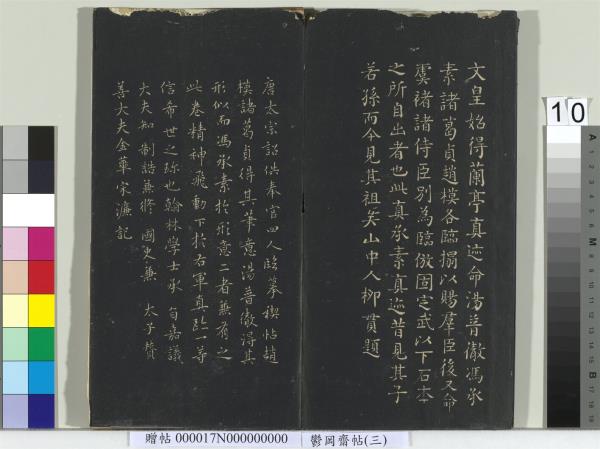 文皇始得蘭亭真迹命湯普徹馮承
素諸葛貞趙模各臨搨以賜羣臣後又命
虞褚諸侍臣別為臨倣固定武以下石本
之所自出者也此真承素真迹昔見其子
若孫而今見其祖矣山中人柳貫題
唐太宗詔供奉官四人臨摹禊帖趙
模諸葛貞得其筆意湯普徹得其
形似而馮承素於形意二者兼有之
此卷精神飛動下於右軍真跡一等
信希世之珍也翰林學士承旨嘉議
大夫知制誥兼修國史兼太子贊
善大夫金華宋濂記
10
A
M
B
贈帖 000017N000000000
鬱岡齋帖(三)